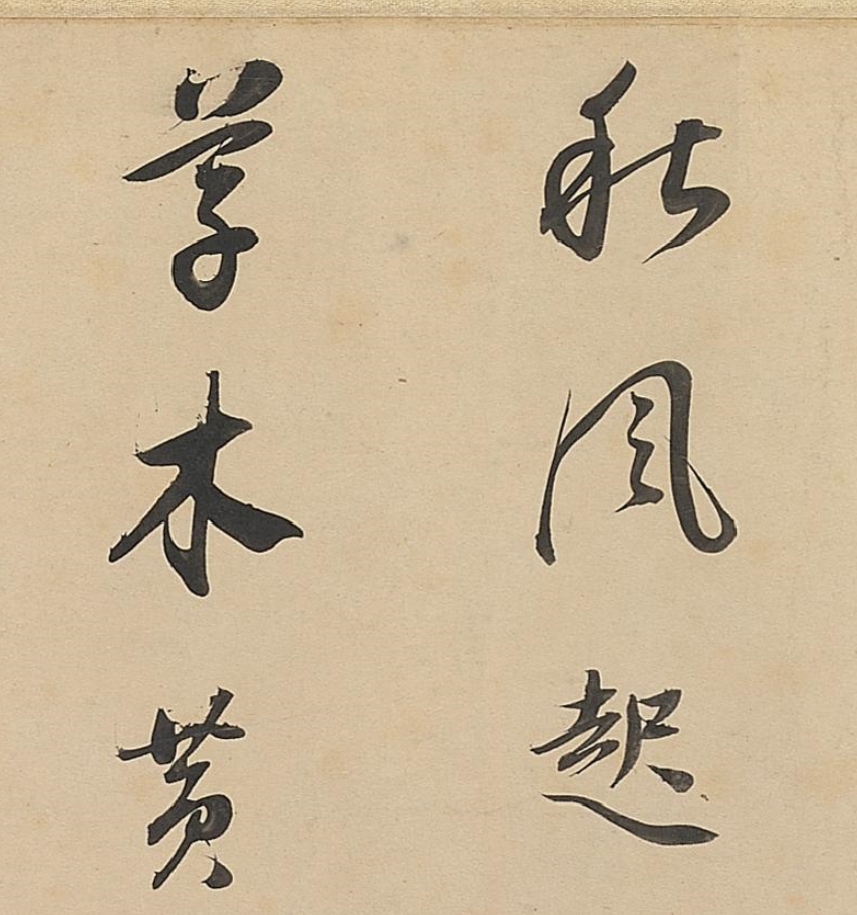 秋風起
草木黄